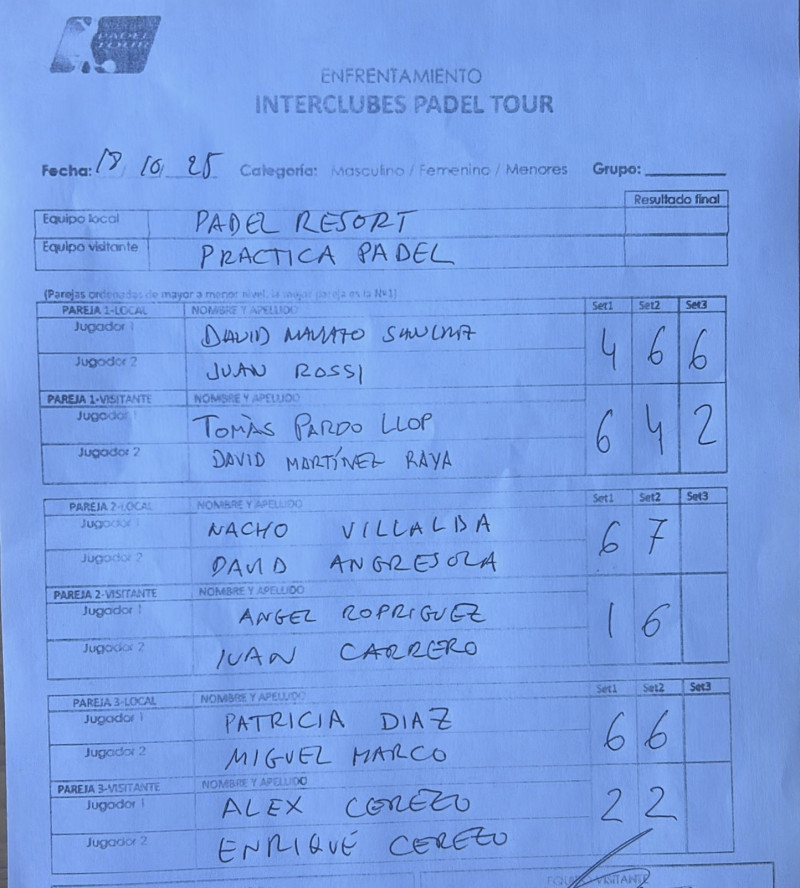 PADEL
TOUR
ENFRENTAMIENTO
INTERCLUBES PADEL TOUR
Fecha: 18 10 25 Categoría: Masculino / Femenino / Menores Grupo:
Resultado final
Equipo local PADEL RESORT
Equipo visitante PRACTICA PADEL
(Parejas ordenadas de mayor a menor nivel, la mejor pareja es la Nº1)
PAREJA 1-LOCAL NOMBRE Y APELLIDO Set1 Set2 Set3
Jugador 1 DAVID
4 6 6
Jugador 2 JUAN ROSSI
PAREJA 1-VISITANTE NOMBRE Y APELLIDO
Jugador 1 TOMÀS PARDO LLOP
6 4 2
Jugador 2 DAVID MARTÍNEZ RAYA
PAREJA 2-LOCAL NOMBRE Y APELLIDO Set1 Set2 Set3
Jugador 1 NACHO VILLALBA
6 7
Jugador 2 DAVID ANGRESOLA
PAREJA 2-VISITANTE NOMBRE Y APELLIDO
Jugador 1 ANGEL RODRIGUEZ
1 6
Jugador 2 IVAN CARRERO
PAREJA 3-LOCAL NOMBRE Y APELLIDO Set1 Set2 Set3
Jugador 1 PATRICIA DIAZ
6 6
Jugador 2 MIGUEL MARCO
PAREJA 3-VISITANTE NOMBRE Y APELLIDO
Jugador 1 ALEX CEREZO
2 2
Jugador 2 ENRIQUE CEREZO
EQUIPO VISITANTE